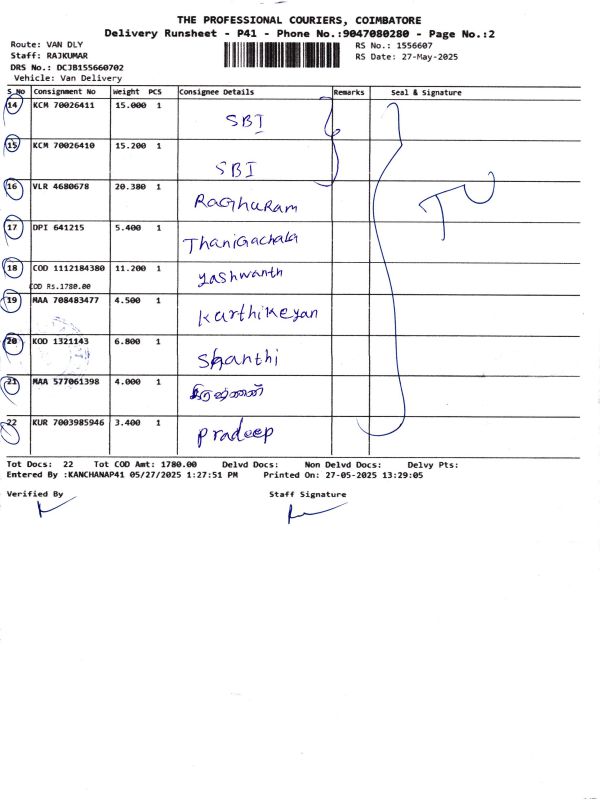 THE PROFESSIONAL COURIERS, COIMBATORE
Delivery Runsheet - P41 - Phone No.:9047080280 - Page No.:2
Route: VAN DLY RS No.: 1556607
Staff: RAJKUMAR RS Date: 27-May-2025
DRS No.: DCJB155660702
Vehicle: Van Delivery
S No Consignment No Weight PCS Consignee Details Remarks Seal & Signature
14 KCM 70026411 15.000 1 SBI
15 KCM 70026410 15.200 1 SBI
16 VLR 4680678 20.380 1 RAGHURAM
17 DPI 641215 5.400 1 ThaniGachala
18 COD 1112184380 11.200 1 Yashwanth
COD Rs.1780.00
19 MAA 708483477 4.500 1 Karthikeyan
20 KOD 1321143 6.800 1 Shanthi
21 MAA 577061398 4.000 1
22 KUR 7003985946 3.400 1 Pradeep
Tot Docs: 22 Tot COD Amt: 1780.00 Delvd Docs: Non Delvd Docs: Delvy Pts:
Entered By :KANCHANAP41 05/27/2025 1:27:51 PM Printed On: 27-05-2025 13:29:05
Verified By Staff Signature